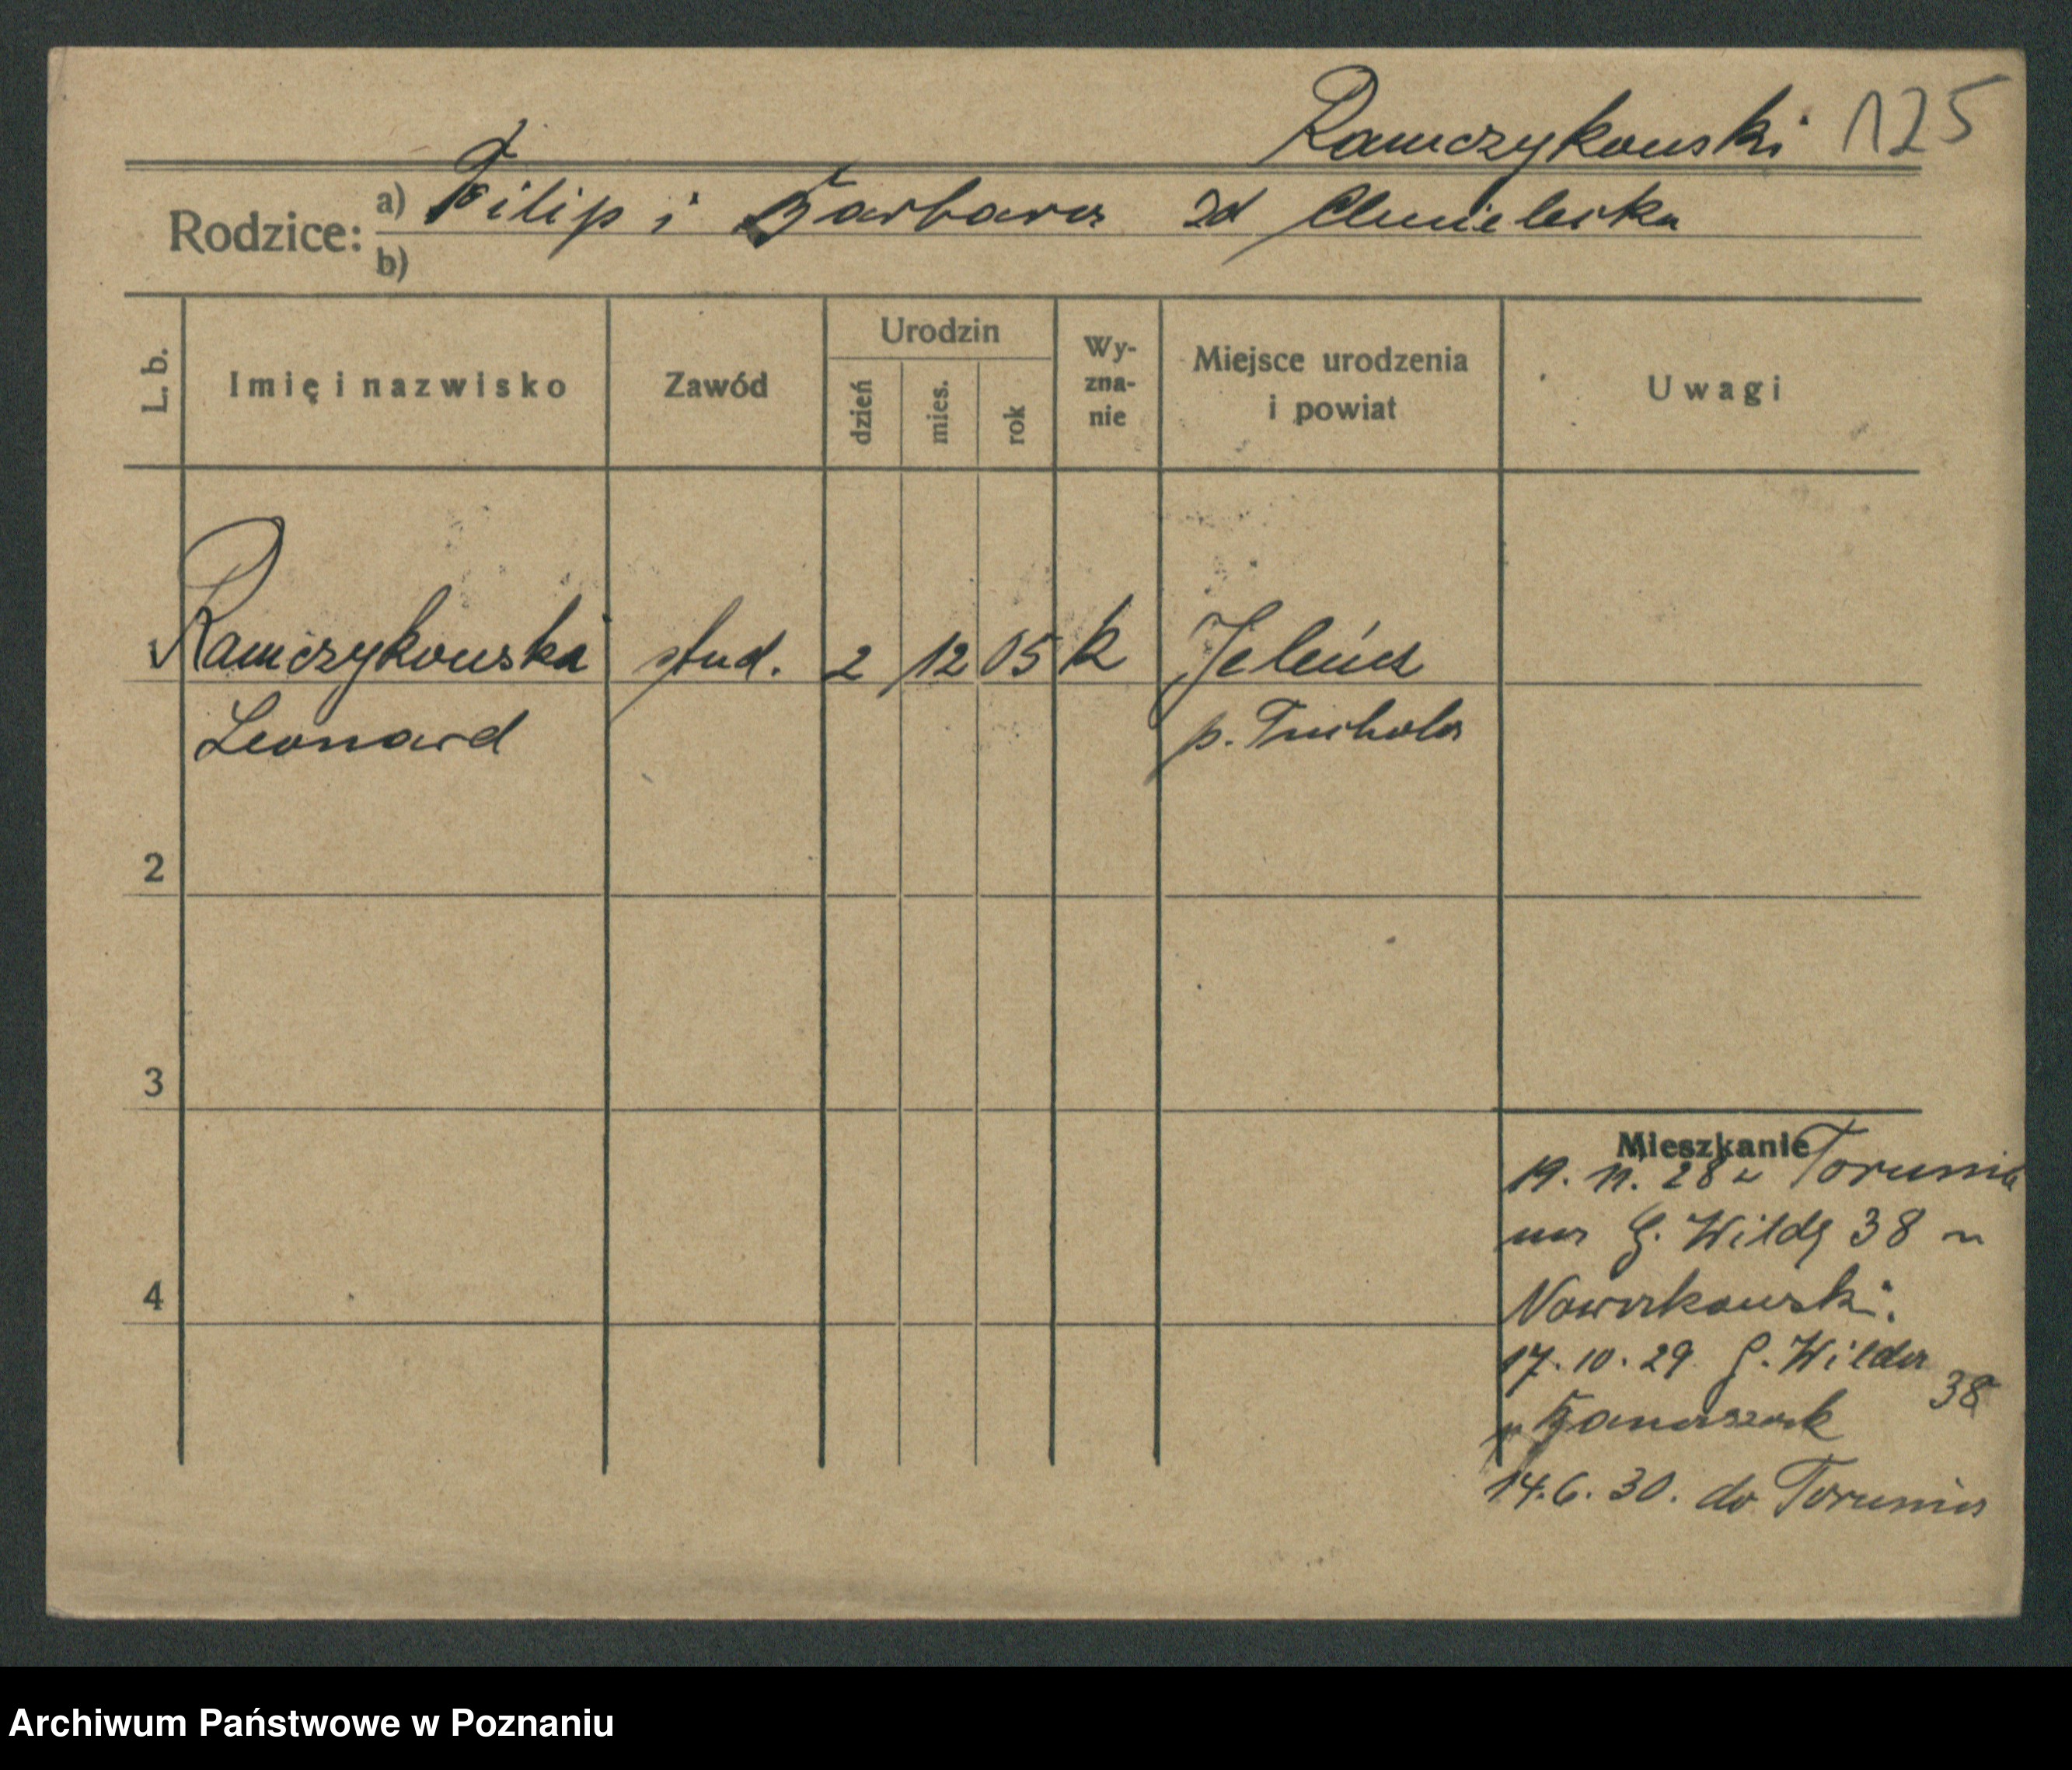 Ramczykowski 125
Rodzice: a) Filip i Barbara zd Chmielecka
b)
L. b. Imię i nazwisko Zawód Urodzin dzień mies. rok Wy-zna-nie Miejsce urodzenia i powiat Uwagi
1 Ramczykowski stud. 2 12 05 k Jeleńcz
Leonard p. Tuchola
2
3
4
Mieszkanie
19. 11. 28 z Torunia
na G. Wildę 38 u
Nowakowski.
17. 10. 29 G. Wilda 38
u Banaszak
14. 6. 30. do Torunia
Archiwum Państwowe w Poznaniu